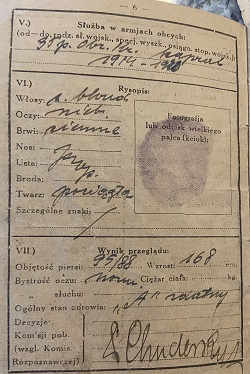 — 6 —
V.) Służba w armjach obcych:
(od—do, rodz. sł. wojsk., specj. wyszk., osiągn. stop. wojsk.)
kapral
1914 - 1918
VI.) Rysopis:
Włosy: c. blond
Oczy: nieb.
Brwi: ciemne
Nos:
Usta:
Broda:
Twarz:
Szczególne znaki:
Fotografja
lub odcisk wielkiego
palca (kciuk):
VII.) Wynik przeglądu:
Objętość piersi: 95/88 Wzrost: 168 cm.
Bystrość oczu: norm Ciężar ciała: kg.
„ słuchu:
Ogólny stan zdrowia: „A" zdatny
Decyzje
Komisji pob.
(wzgl. Komis.
Rozpoznawczej)